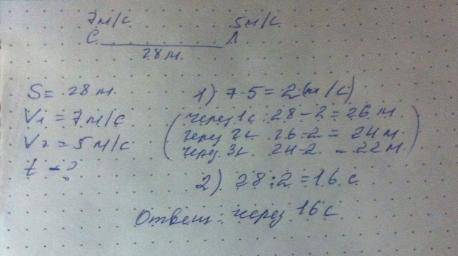 7м/с 5м/с
С Л
28 м.
S = 28 м.
V1 = 7 м/с
V2 = 5 м/с
t - ?
1) 7-5=2(м/с)
(через 1с. 28-2=26 м.
через 2с. 26-2=24 м.
через 3с. 24-2 = 22 м)
2) 28:2=16 с.
Ответ: через 16 с.